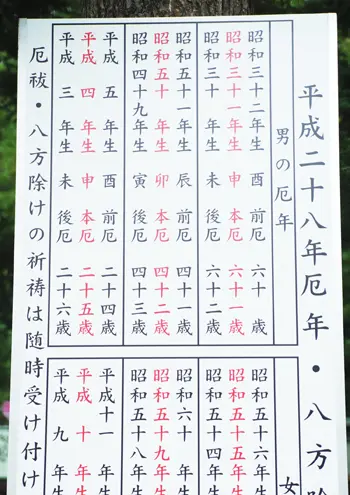 平成二十八年厄年・八方除
男の厄年
昭和三十二年生 酉 前厄 六十歳
昭和三十一年生 申 本厄 六十一歳
昭和三十 年生 未 後厄 六十二歳
昭和五十一年生 辰 前厄 四十一歳
昭和五十 年生 卯 本厄 四十二歳
昭和四十九年生 寅 後厄 四十三歳
平成 五 年生 未 前厄 二十四歳
平成 四 年生 申 本厄 二十五歳
平成 三 年生 未 後厄 二十六歳
女
昭和五十六年生
昭和五十五年生
昭和五十四年生
昭和六十 年生
昭和五十九年生
昭和五十八年生
平成十一年生
平成 十 年生
平成 九 年生
厄祓・八方除けの祈祷は随時受け付け